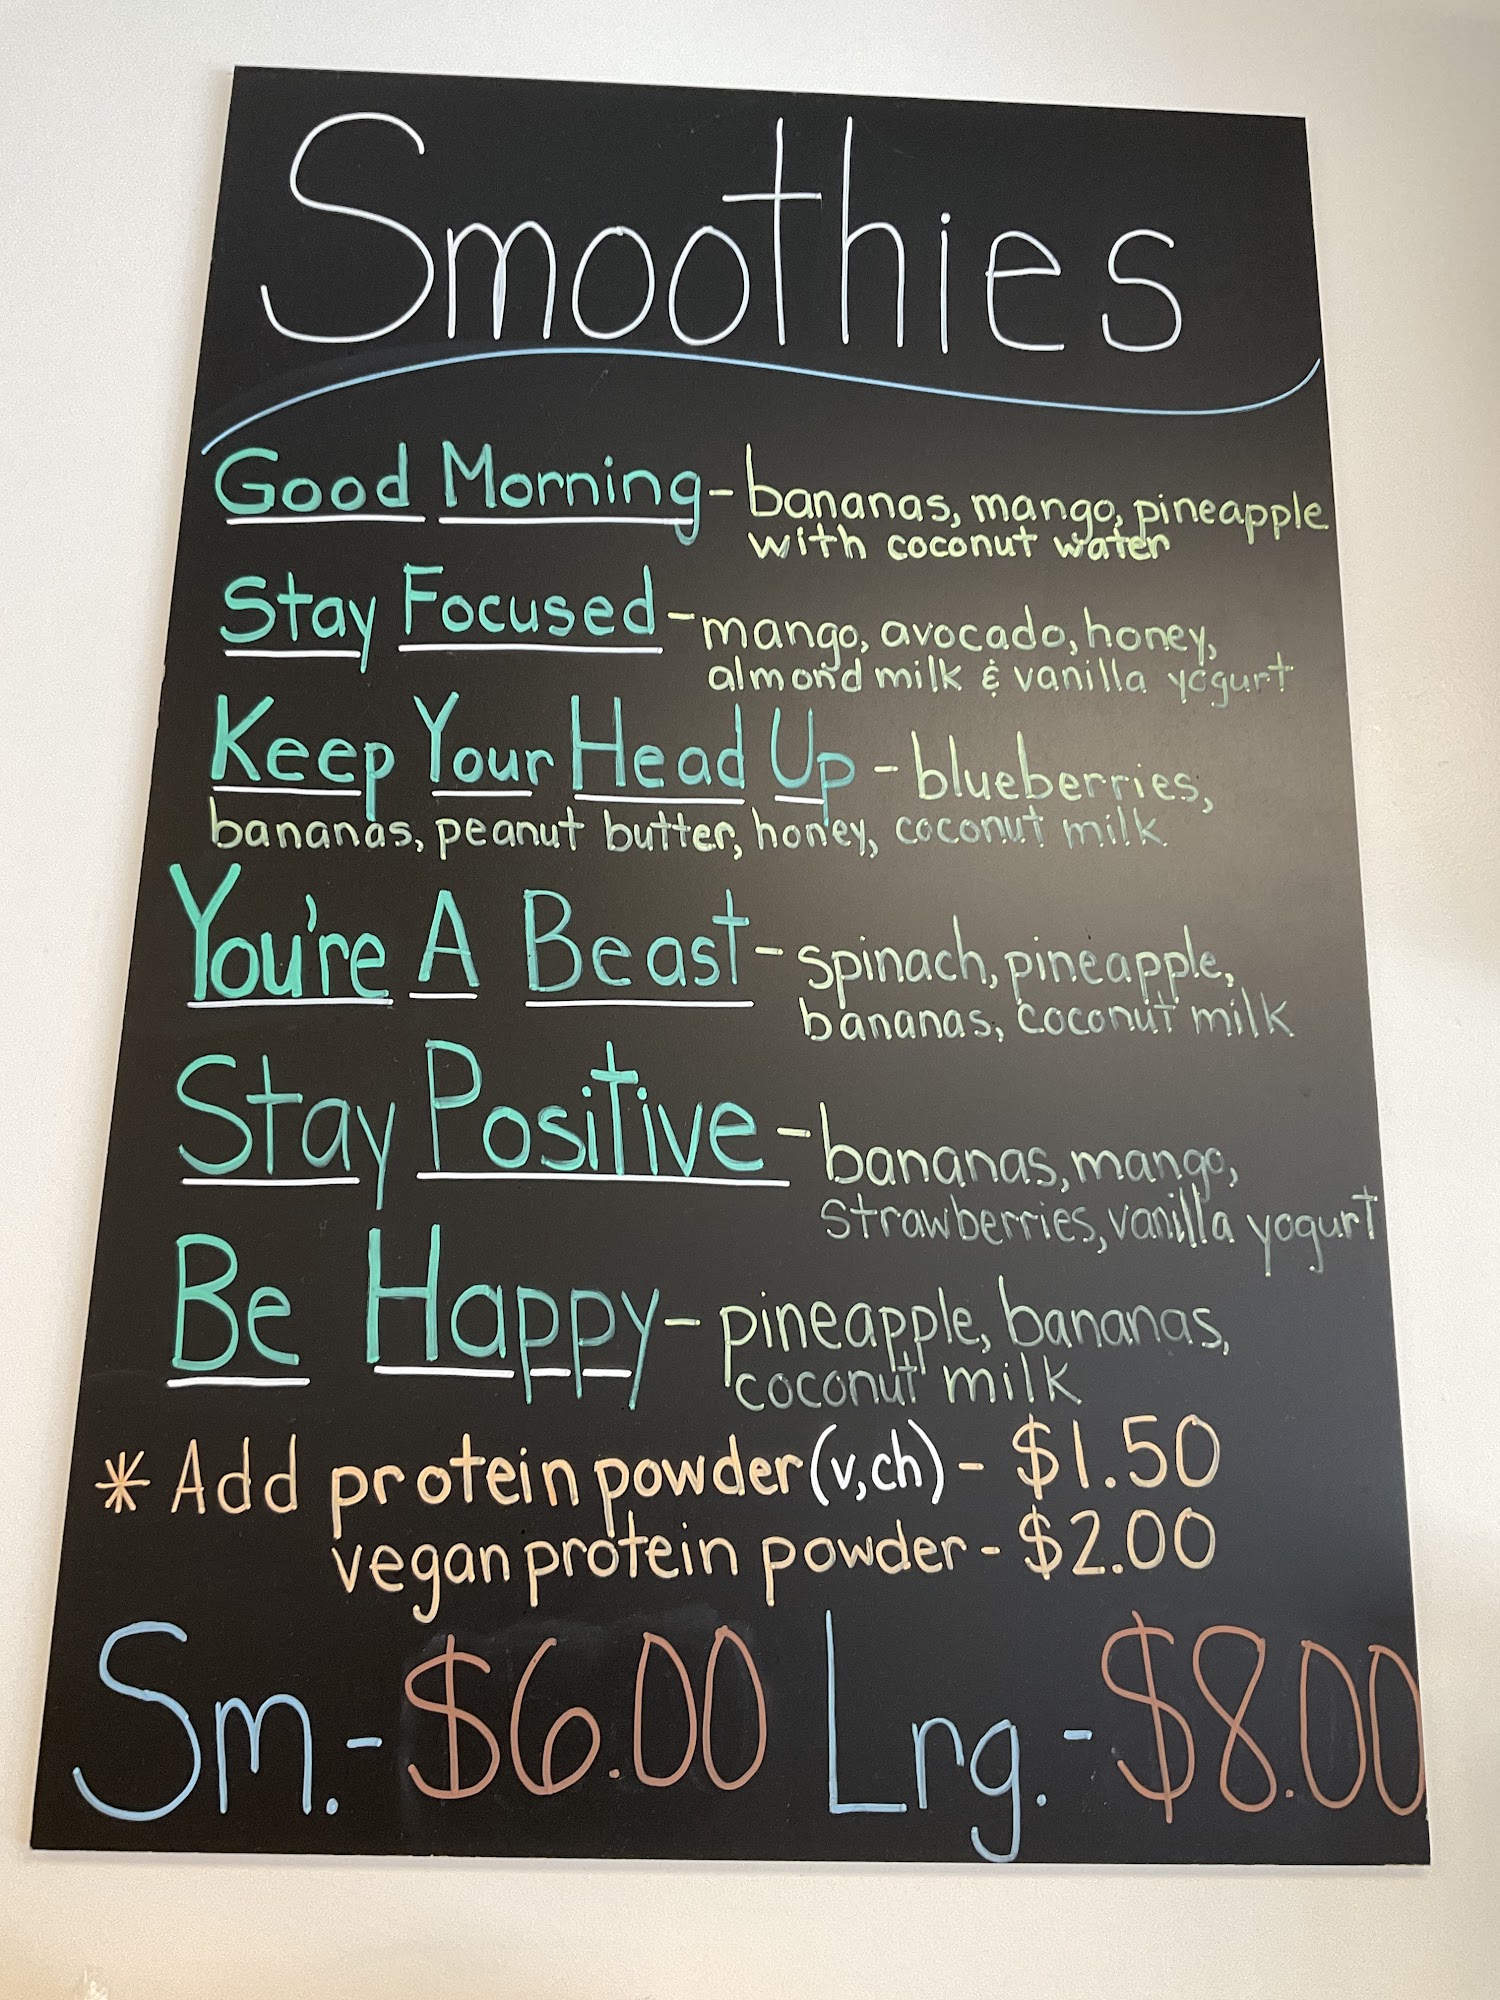 Smoothies
Good Morning - bananas, mango, pineapple
with coconut water
Stay Focused - mango, avocado, honey,
almond milk & vanilla yogurt
Keep Your Head Up - blueberries,
bananas, peanut butter, honey, coconut milk
You're A Beast - spinach, pineapple,
bananas, coconut milk
Stay Positive - bananas, mango,
strawberries, vanilla yogurt
Be Happy - pineapple, bananas,
coconut milk
* Add protein powder (v,ch) - $1.50
vegan protein powder - $2.00
Sm. - $6.00 Lrg. - $8.00